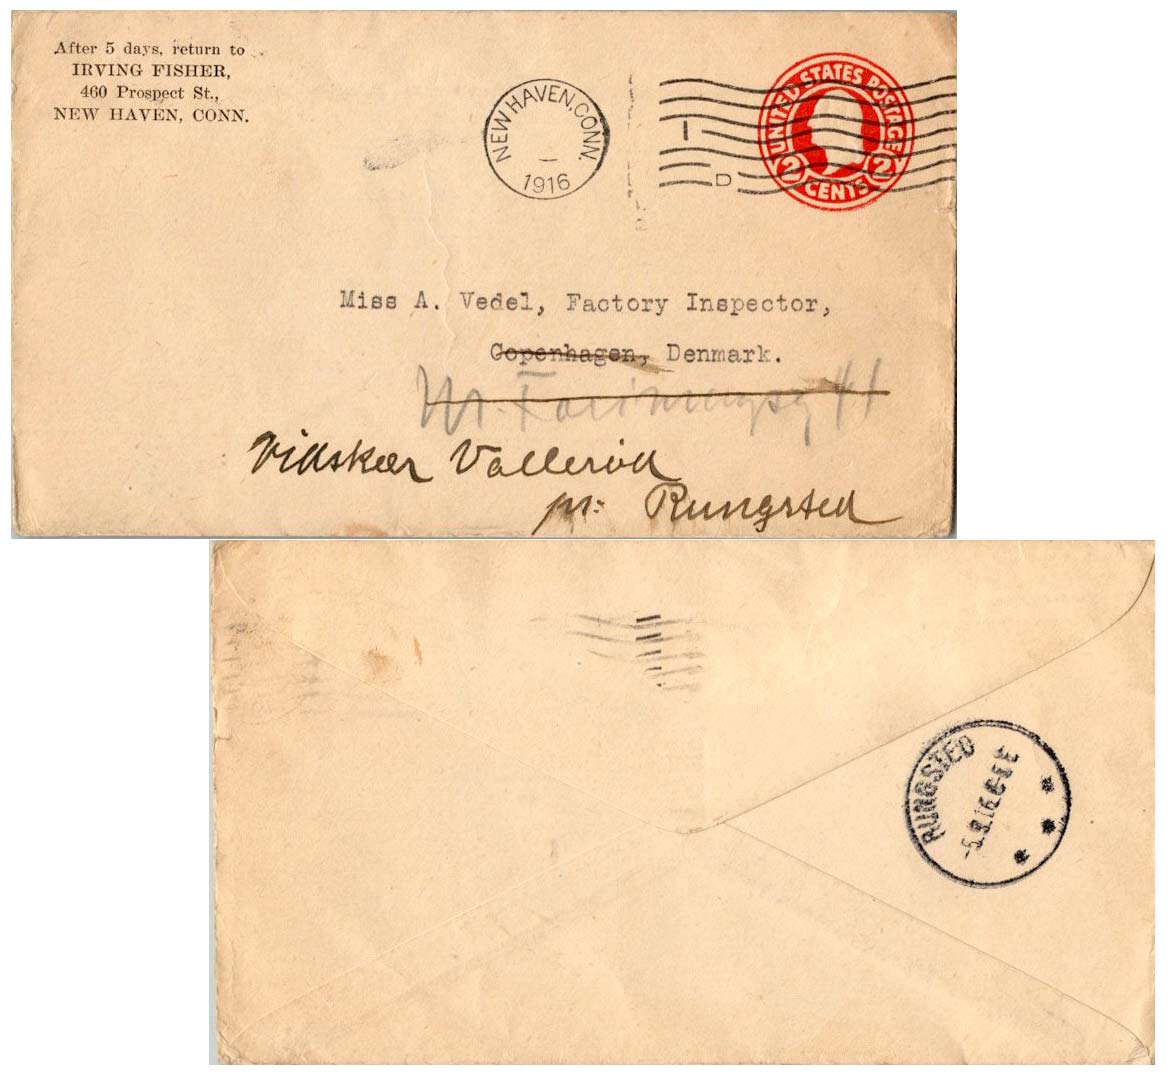 After 5 days, return to
IRVING FISHER,
460 Prospect St.,
NEW HAVEN, CONN.
NEW HAVEN, CONN.
1916
1
D
UNITED STATES POSTAGE
2 CENTS 2
Miss A. Vedel, Factory Inspector,
Copenhagen, Denmark.
41
Vallerød
pr: Rungsted
RUNGSTED